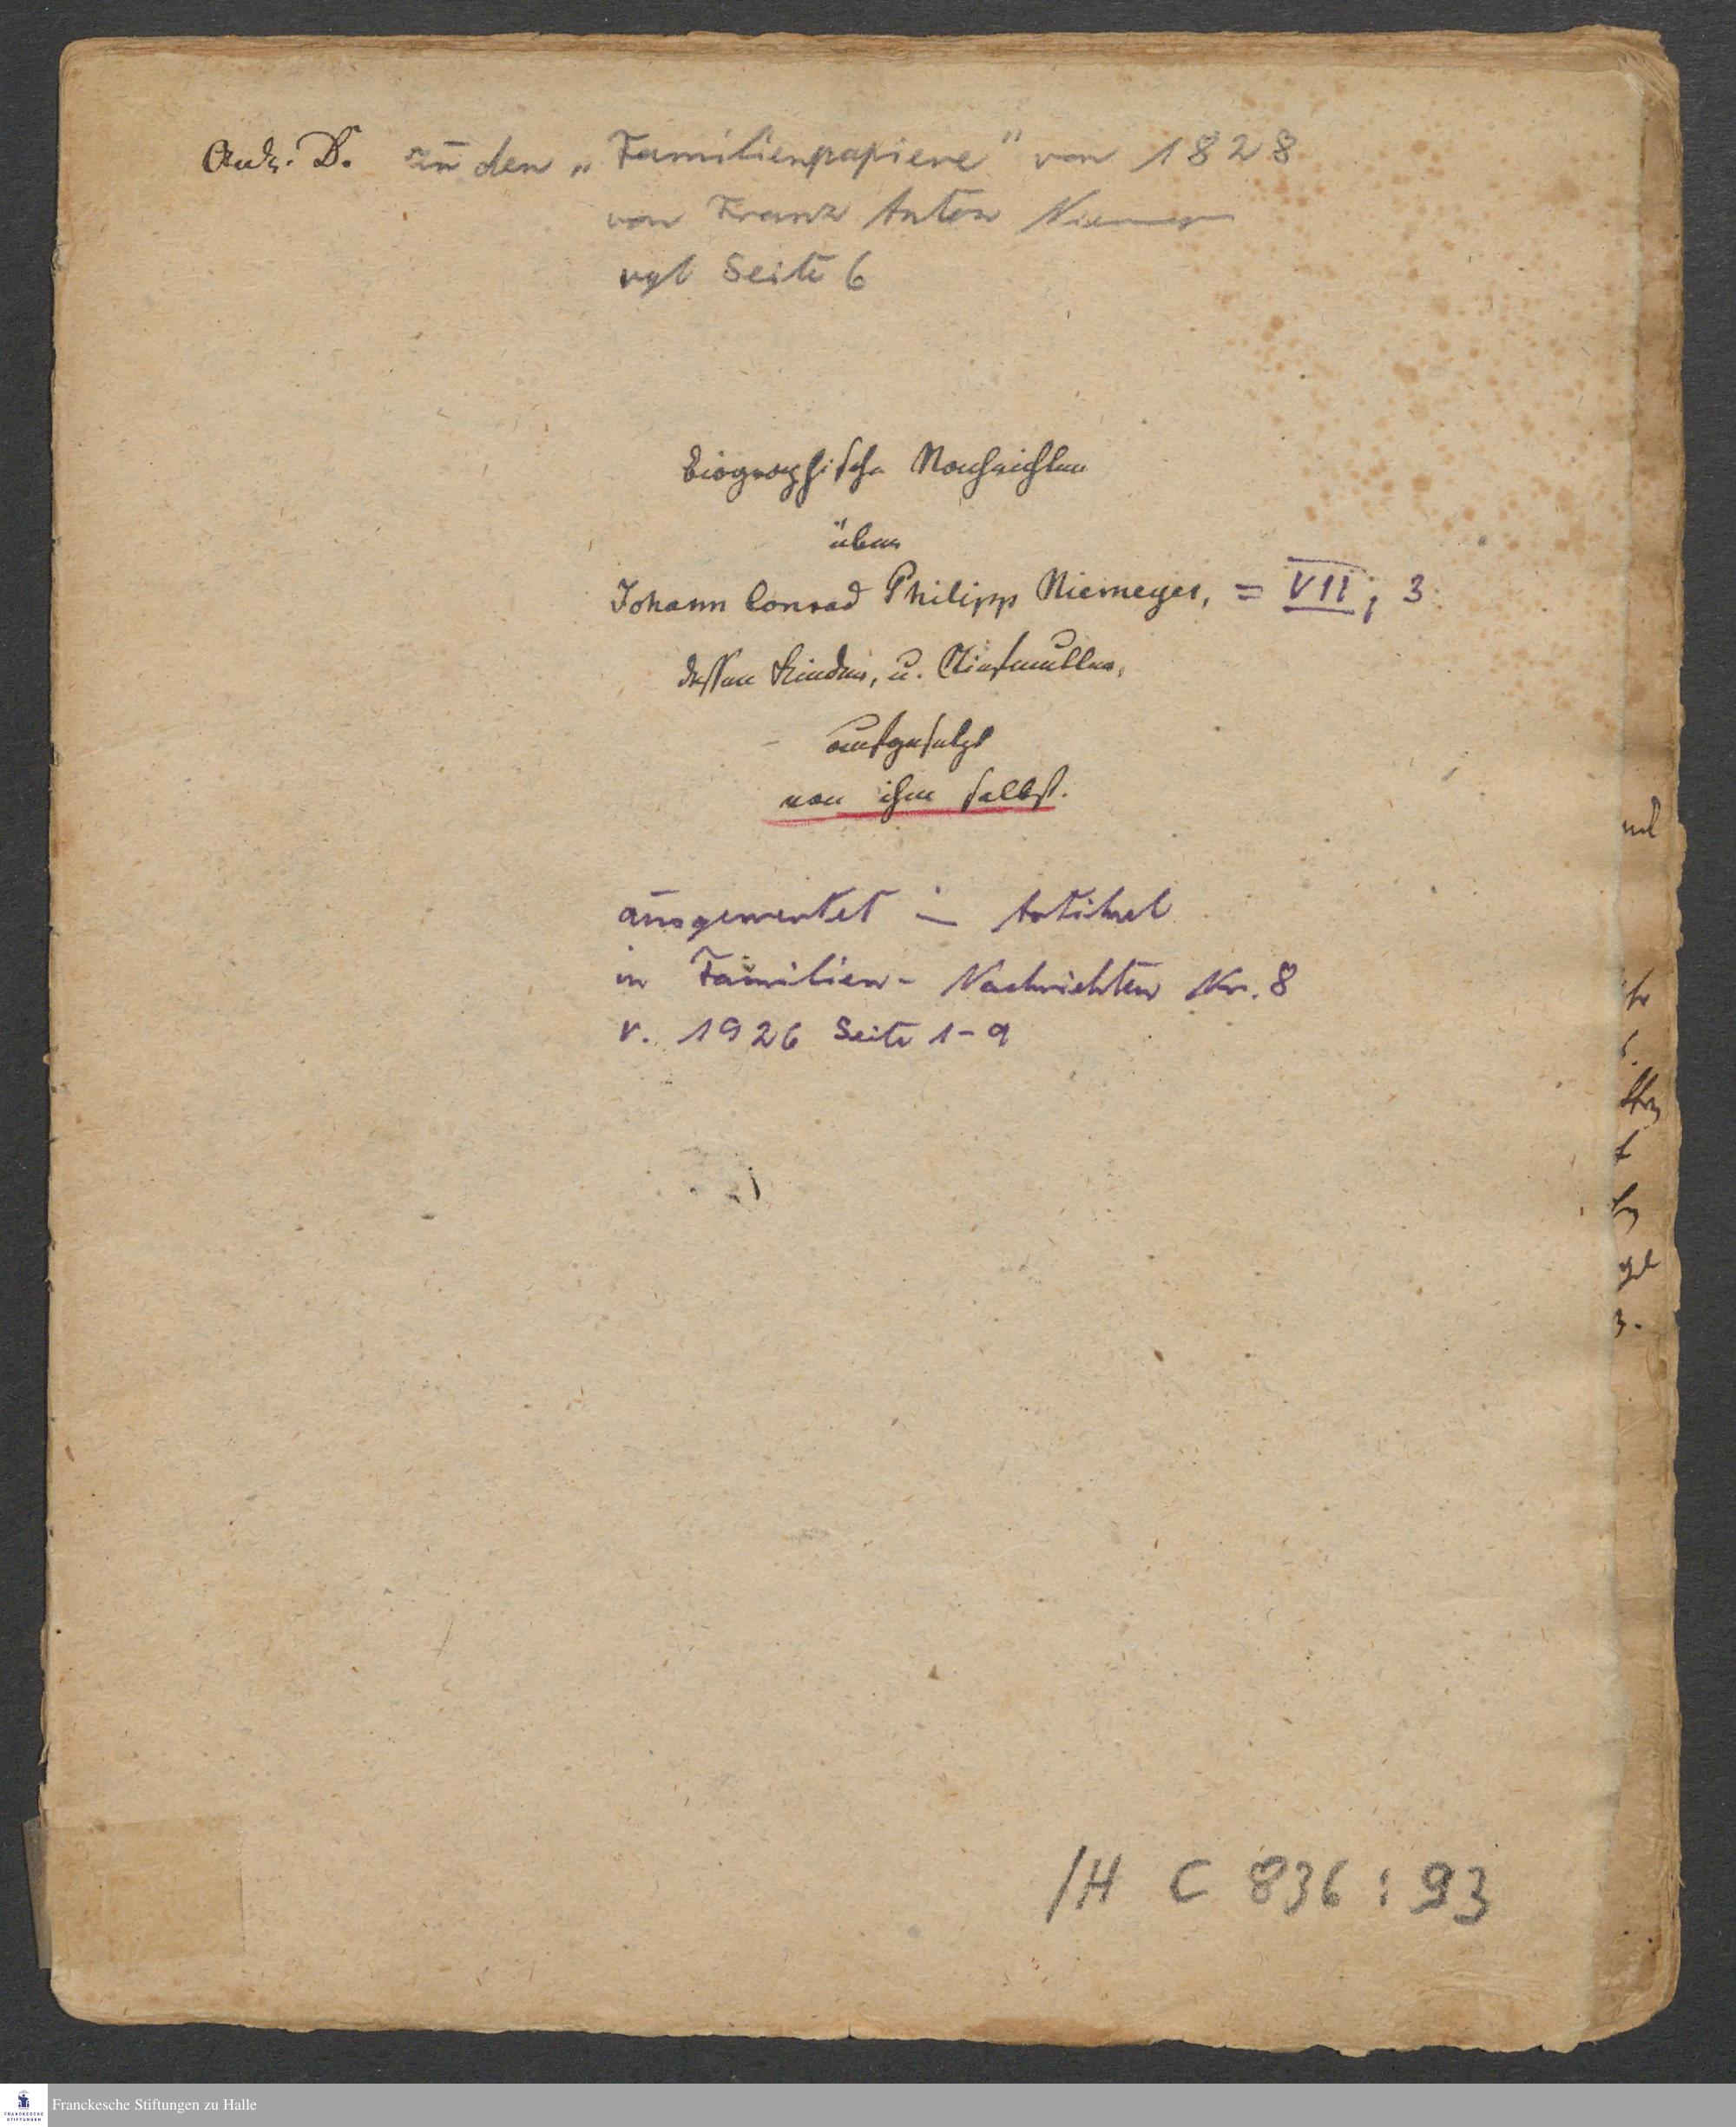 Anh. D. zū den „Familienpapiere" von 1828
von Franz Anton Niemeyer
vgl Seite 6
Biographische Nachrichten
über
Johann Conrad Philipp Niemeyer, = VII, 3
dessen Kinder, u. Stiefmutter,
aufgesetzt
von ihm selbst.
aūsgewertet in Artikel
in Familien- Nachrichten Nr. 8
v. 1926 Seite 1-9
/H C 836 : 93
Franckesche Stiftungen zu Halle
FRANCKESCHE
STIFTUNGEN